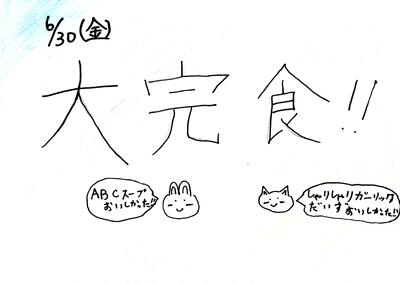 6/30(金)
大完食!!
ABCスープ
おいしかた!!
しゃりしゃりガーリック
だいず おいしかた!!